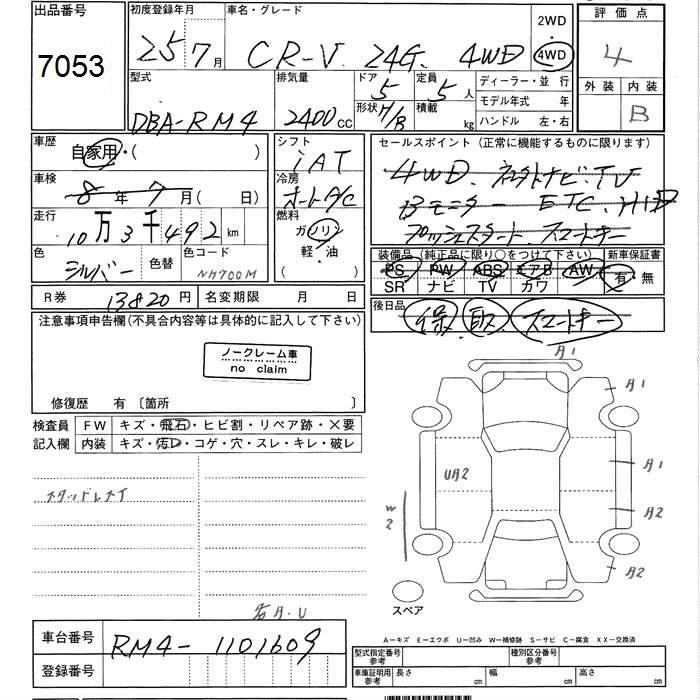 出品番号 初度登録年月 車名・グレード 2WD ・ 4WD 評価点
7053 25 7月 CR-V 24G 4WD 4
型式 排気量 ドア 5 定員 5人 ディーラー・並 行 外装 内装
DBA-RM4 2400CC 形状 H/B 積載 kg モデル年式 年 B
ハンドル 左・右
車歴 自家用・( ) シフト iAT セールスポイント (正常に機能するものに限ります)
車検 8年 7月( 日) 冷房 オートA/c 4WD、 TV
走行 10万3千492km 燃料 ガソリン Bモニター ETC、HID
軽・油 プッシュスタート、スマートキー
色 シルバー 色替 色コード NH700M
装備品 (純正品に限り○をつけて下さい) 新車保証書
PS PW ABS エアB AW 有・無
SR ナビ TV カワ
R券 13820円 名変期限 月 日
後日品 保 取 スマートキー
注意事項申告欄(不具合内容等は具体的に記入して下さい)
ノークレーム車
no claim
修復歴 有 〔箇所 〕
検査員 FW キズ・飛石・ヒビ割・リペア跡・×要
記入欄 内装 キズ・汚れ・コゲ・穴・スレ・キレ・破レ
A1
A1
A1
UA2
A2
W2
A2
スペア
A.U
車台番号 RM4-1101609
登録番号
A−キズ E−エクボ U−凹み W−補修跡 S−サビ C−腐食 XX−交換済
型式指定番号 参考 種別区分番号 参考
車庫証明用 参考 長さ cm 幅 cm 高さ cm